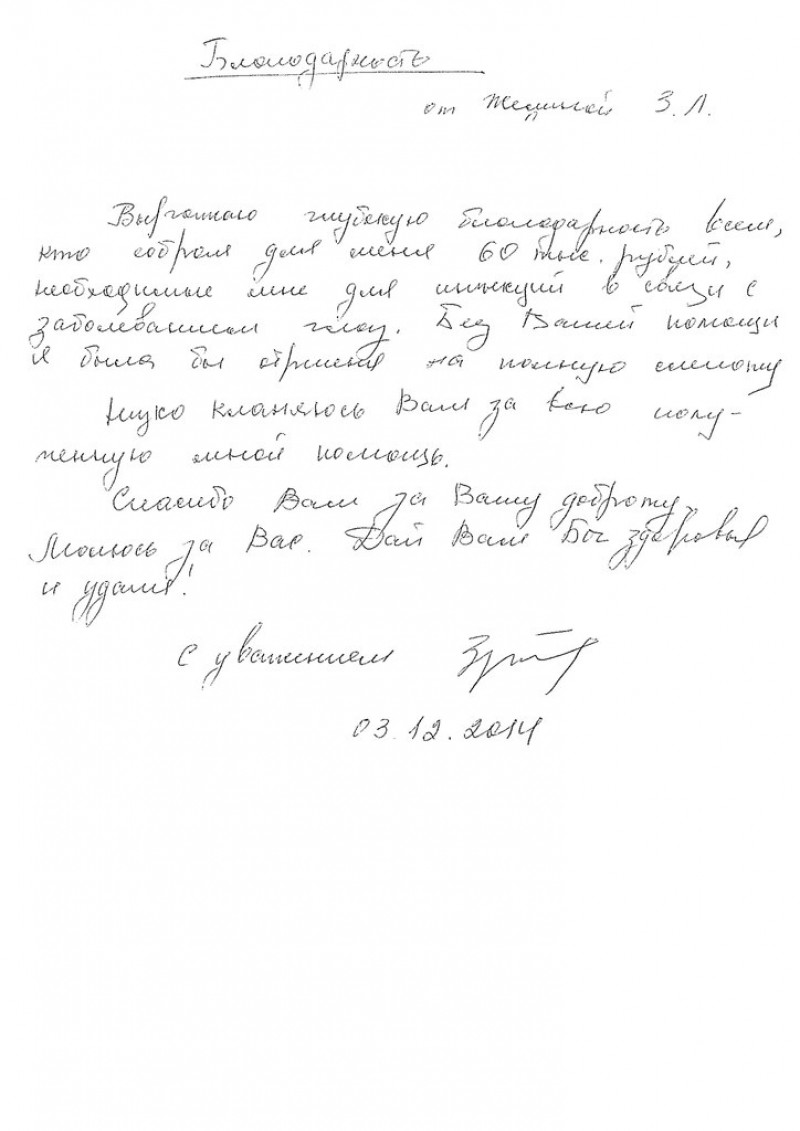 Благодарность
от З. Л.
Выражаю глубокую благодарность всем,
кто собрал для меня 60 тыс. рублей,
необходимые мне для инъекций в связи с
заболеванием глаз. Без Вашей помощи
я была бы обречена на полную слепоту
Низко кланяюсь Вам за всю полу-
ченную мной помощь.
Спасибо Вам за Вашу доброту.
Молюсь за Вас. Дай Вам Бог здоровья
и удачи!
С уважением
03.12.2014